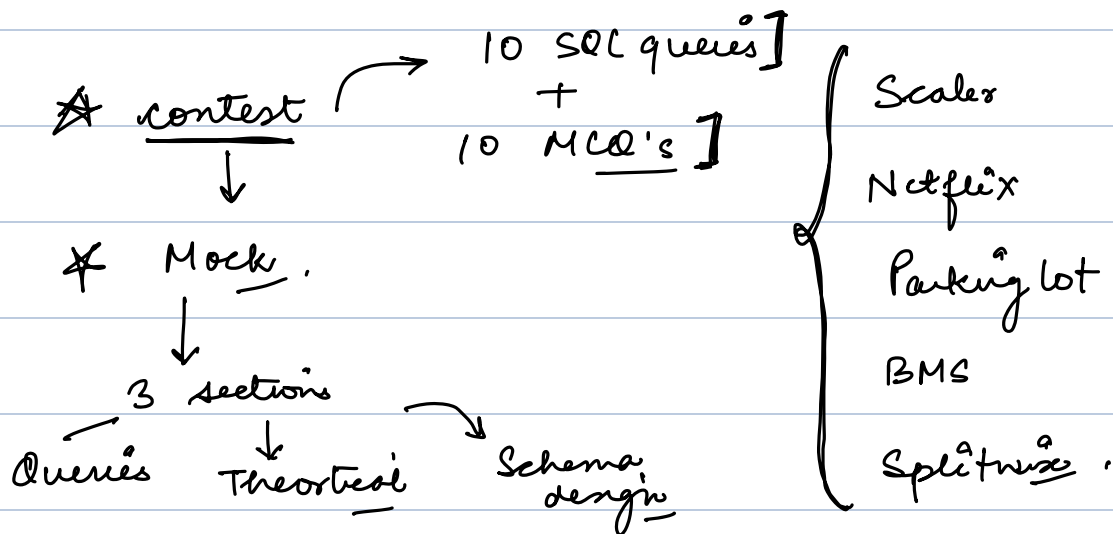 10 SQL queries]
+
10 MCQ's]
contest
Mock.
3 sections
Queries
Theortical
Schema
design
Scaler
Netflix
Parking lot
BMS
Splitwise.